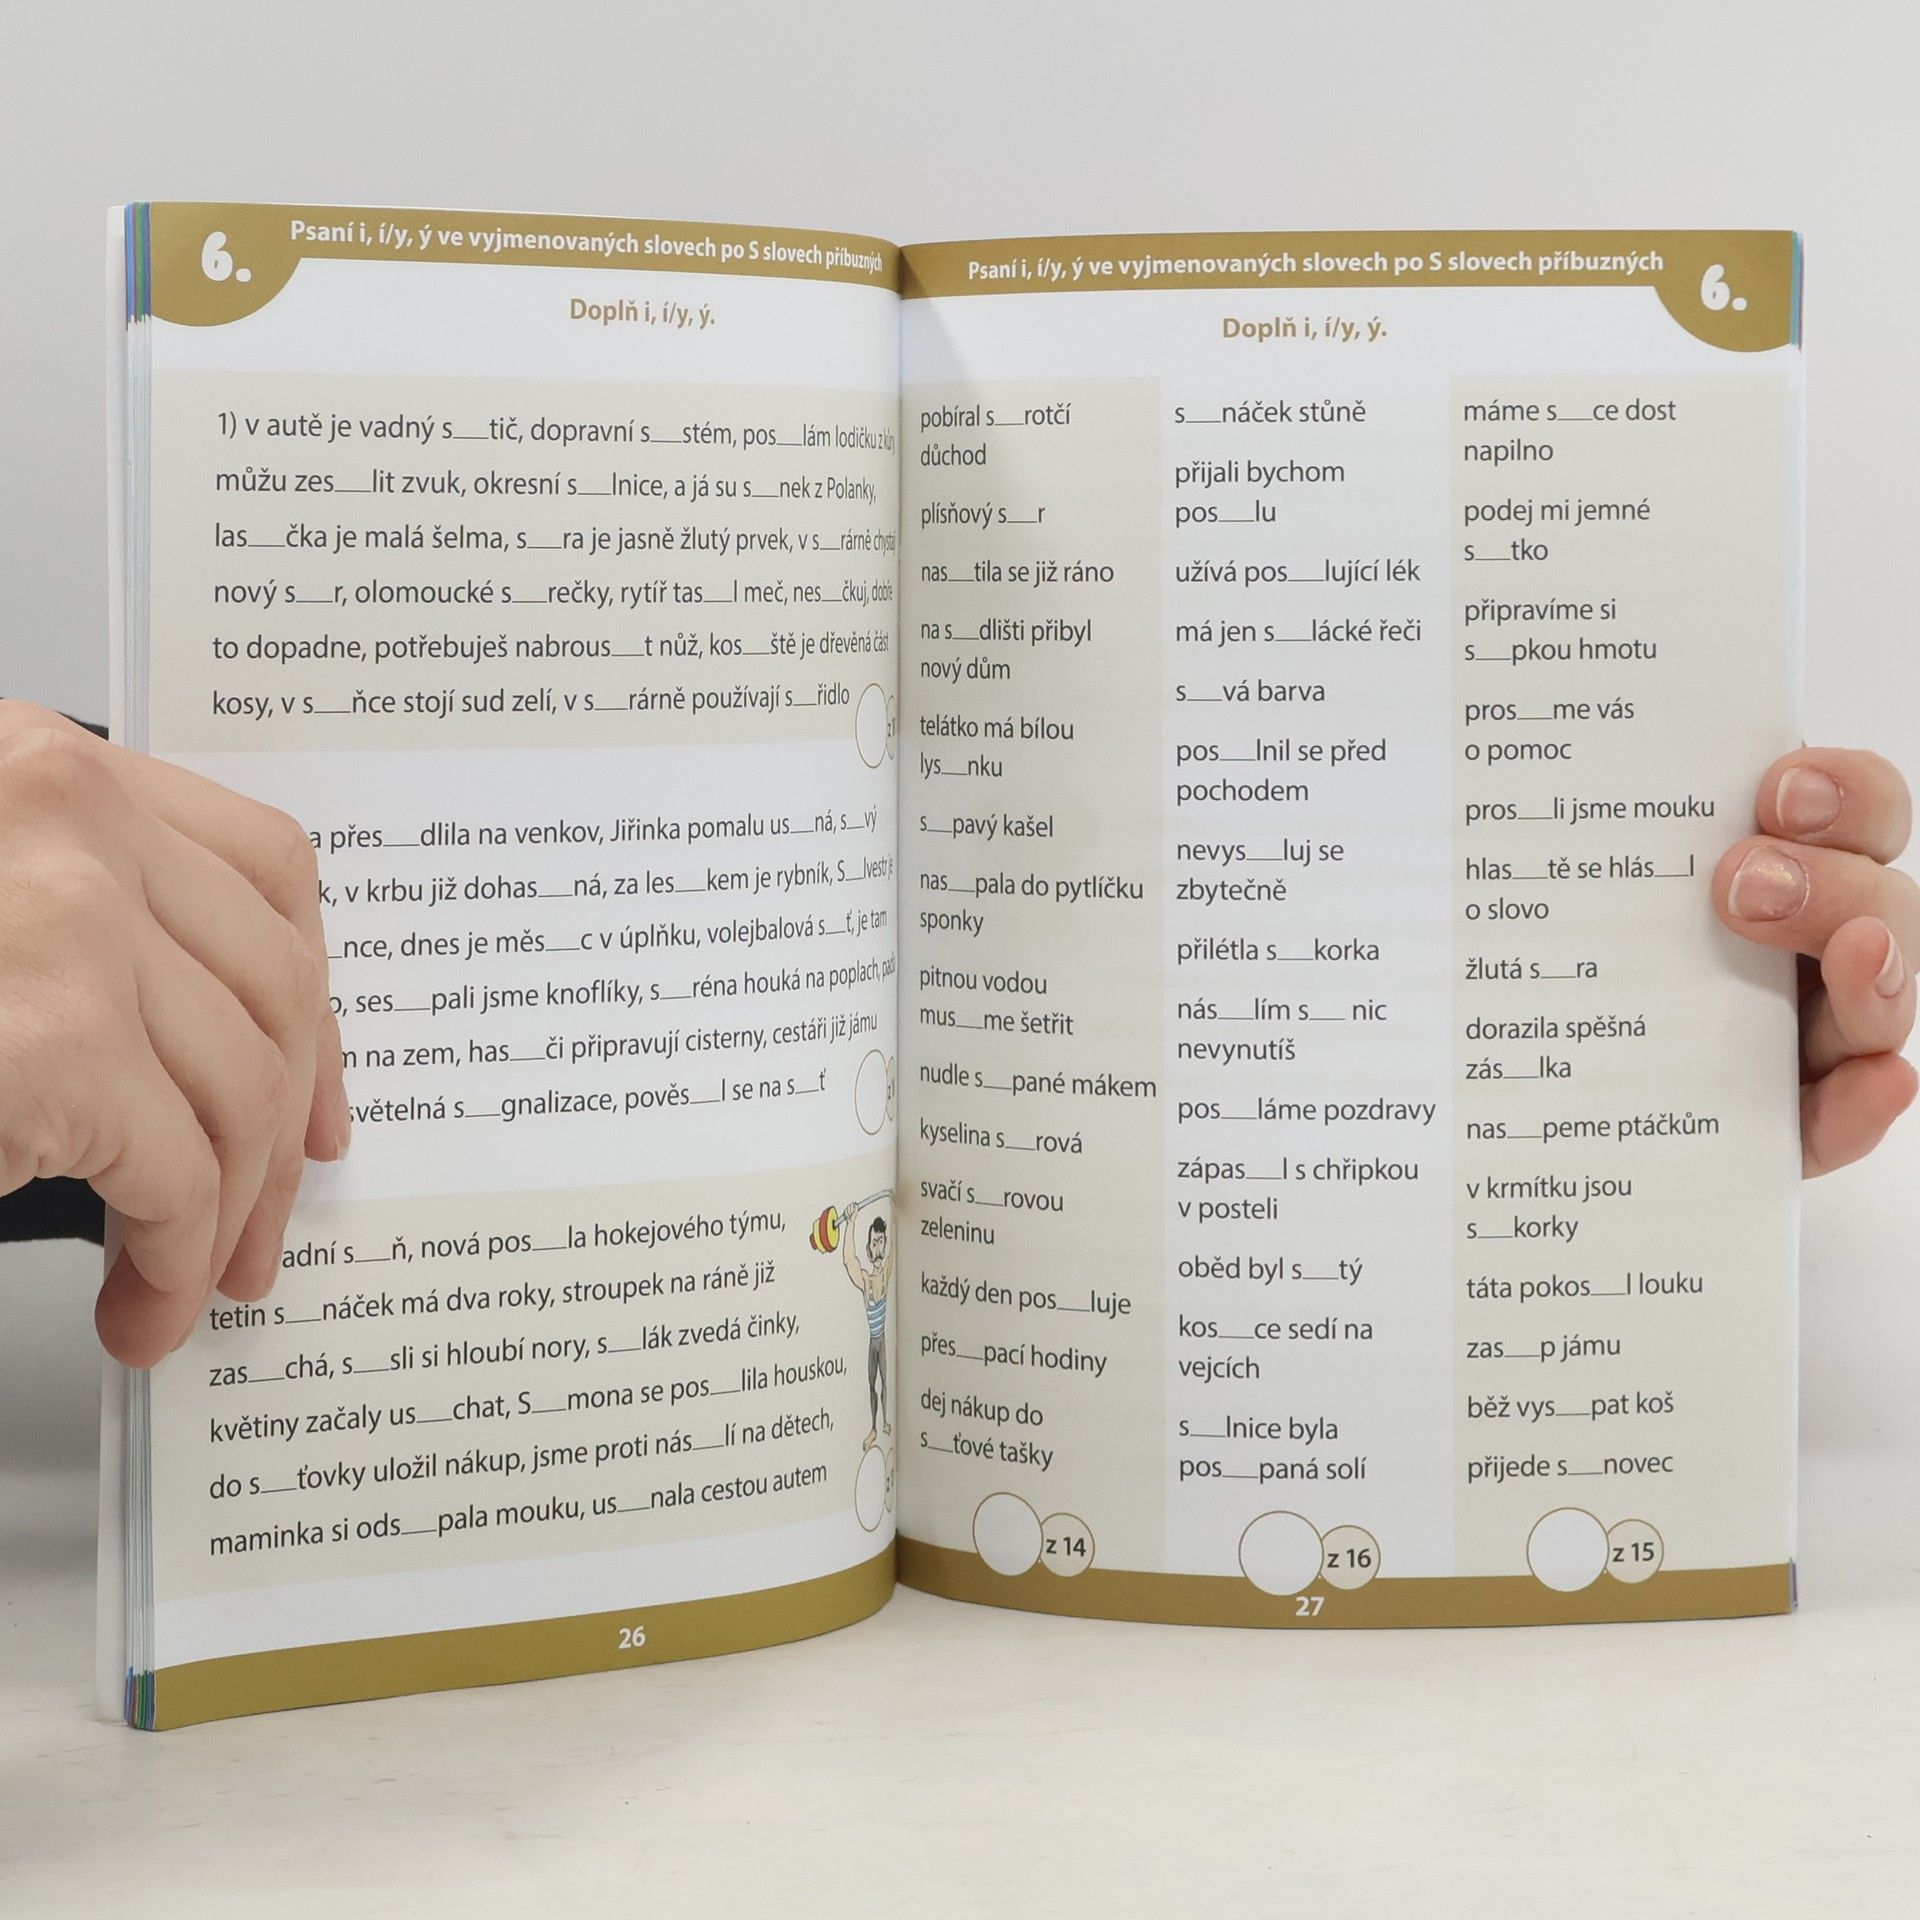 6.
Psaní i, í/y, ý ve vyjmenovaných slovech po S slovech příbuzných
Doplň i, í/y, ý.
1) v autě je vadný s__tič, dopravní s__stém, pos__lám lodičku z
můžu zes__lit zvuk, okresní s__lnice, a já su s__nek z Polanky,
las__čka je malá šelma, s__ra je jasně žlutý prvek, v s__rárně
nový s__r, olomoucké s__rečky, rytíř tas__l meč, nes__čkuj, dobře
to dopadne, potřebuješ nabrous__t nůž, kos__ště je dřevěná část
kosy, v s__ňce stojí sud zelí, v s__rárně používají s__řidlo
a přes__dlila na venkov, Jiřinka pomalu us__ná, s__vý
k, v krbu již dohas__ná, za les__kem je rybník, S__lvestr je
__nce, dnes je měs__c v úplňku, volejbalová s__ť, je tam
o, ses__pali jsme knoflíky, s__réna houká na poplach,
m na zem, has__či připravují cisterny, cestáři již jámu
světelná s__gnalizace, pověs__l se na s__ť
adní s__ň, nová pos__la hokejového týmu,
tetin s__náček má dva roky, stroupek na ráně již
zas__chá, s__sli si hloubí nory, s__lák zvedá činky,
květiny začaly us__chat, S__mona se pos__lila houskou,
do s__ťovky uložil nákup, jsme proti nás__lí na dětech,
maminka si ods__pala mouku, us__nala cestou autem
26
Psaní i, í/y, ý ve vyjmenovaných slovech po S slovech příbuzných
6.
Doplň i, í/y, ý.
pobíral s__rotčí
důchod
plísňový s__r
nas__tila se již ráno
na s__dlišti přibyl
nový dům
telátko má bílou
lys__nku
s__pavý kašel
nas__pala do pytlíčku
sponky
pitnou vodou
mus__me šetřit
nudle s__pané mákem
kyselina s__rová
svačí s__rovou
zeleninu
každý den pos__luje
přes__pací hodiny
dej nákup do
s__ťové tašky
z 14
s__náček stůně
přijali bychom
pos__lu
užívá pos__lující lék
má jen s__lácké řeči
s__vá barva
pos__lnil se před
pochodem
nevys__luj se
zbytečně
přilétla s__korka
nás__lím s__ nic
nevynutíš
pos__láme pozdravy
zápas__l s chřipkou
v posteli
oběd byl s__tý
kos__ce sedí na
vejcích
s__lnice byla
pos__paná solí
z 16
máme s__ce dost
napilno
podej mi jemné
s__tko
připravíme si
s__pkou hmotu
pros__me vás
o pomoc
pros__li jsme mouku
hlas__tě se hlás__l
o slovo
žlutá s__ra
dorazila spěšná
zás__lka
nas__peme ptáčkům
v krmítku jsou
s__korky
táta pokos__l louku
zas__p jámu
běž vys__pat koš
přijede s__novec
z 15
27